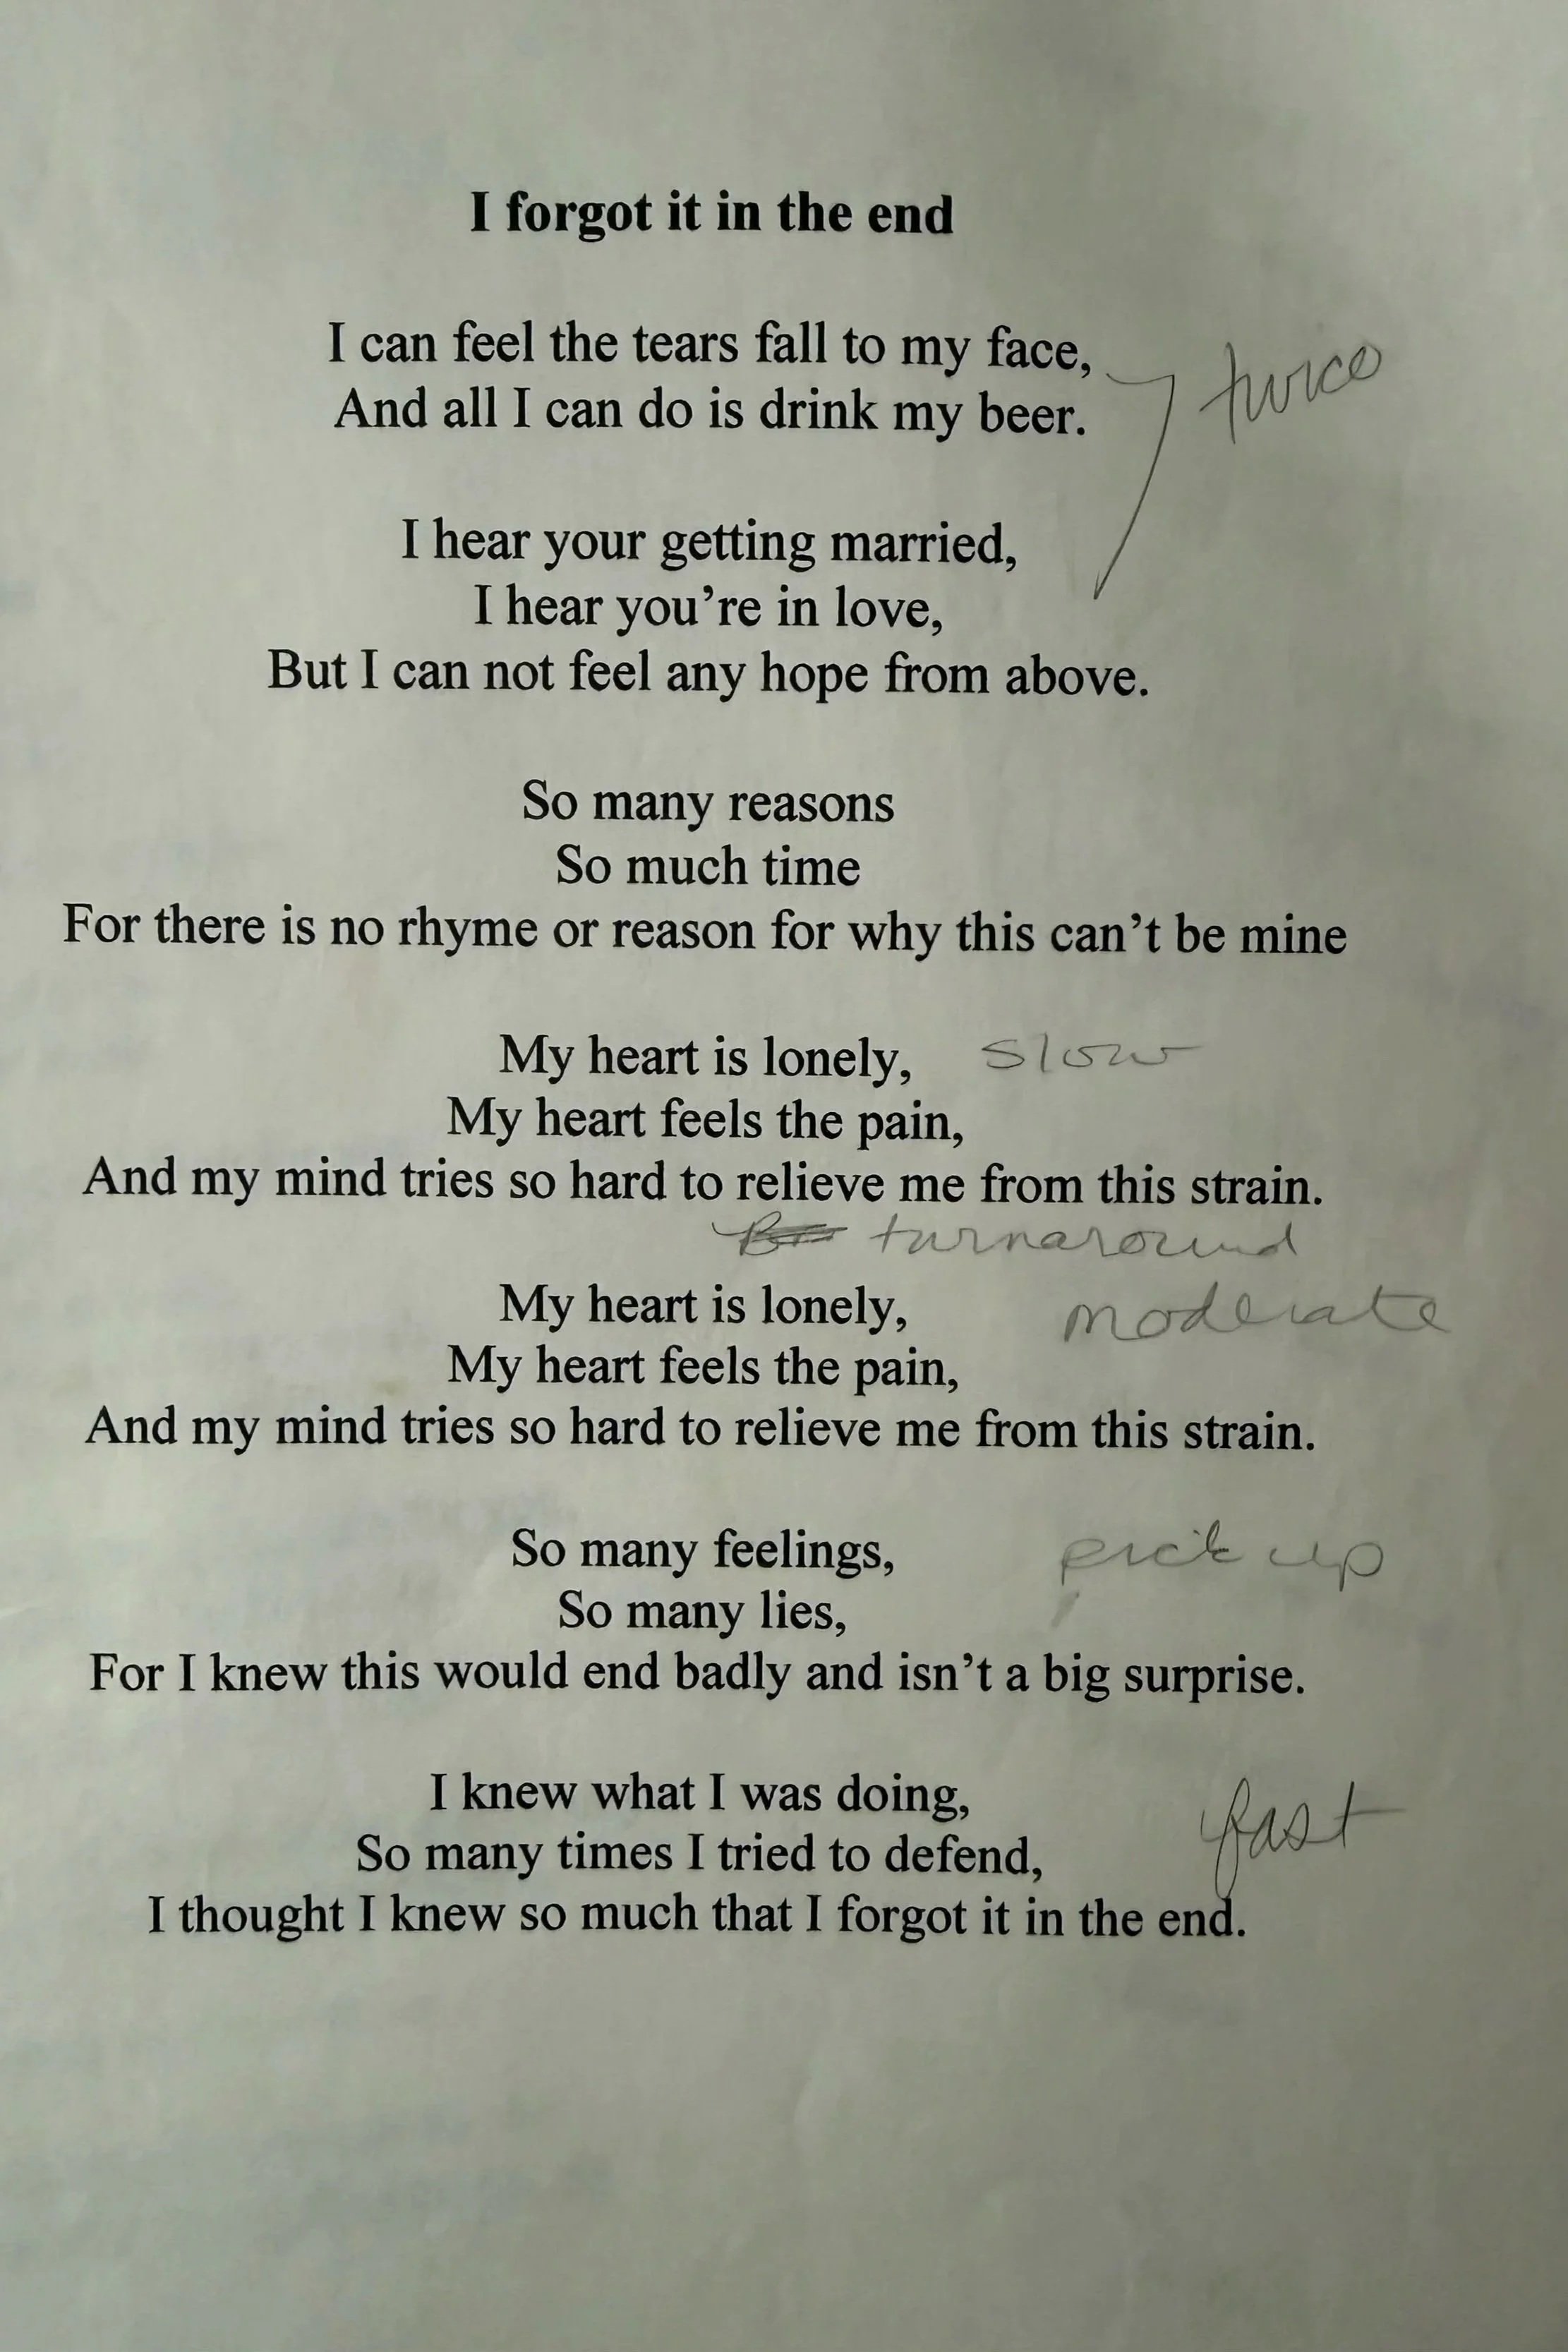 I forgot it in the end
I can feel the tears fall to my face,
twice
And all I can do is drink my beer.
I hear your getting married,
I hear you’re in love,
But I can not feel any hope from above.
So many reasons
So much time
For there is no rhyme or reason for why this can’t be mine
My heart is lonely, slow
My heart feels the pain,
And my mind tries so hard to relieve me from this strain.
turnaround
My heart is lonely, moderate
My heart feels the pain,
And my mind tries so hard to relieve me from this strain.
So many feelings, pick up
So many lies,
For I knew this would end badly and isn’t a big surprise.
I knew what I was doing, fast
So many times I tried to defend,
I thought I knew so much that I forgot it in the end.